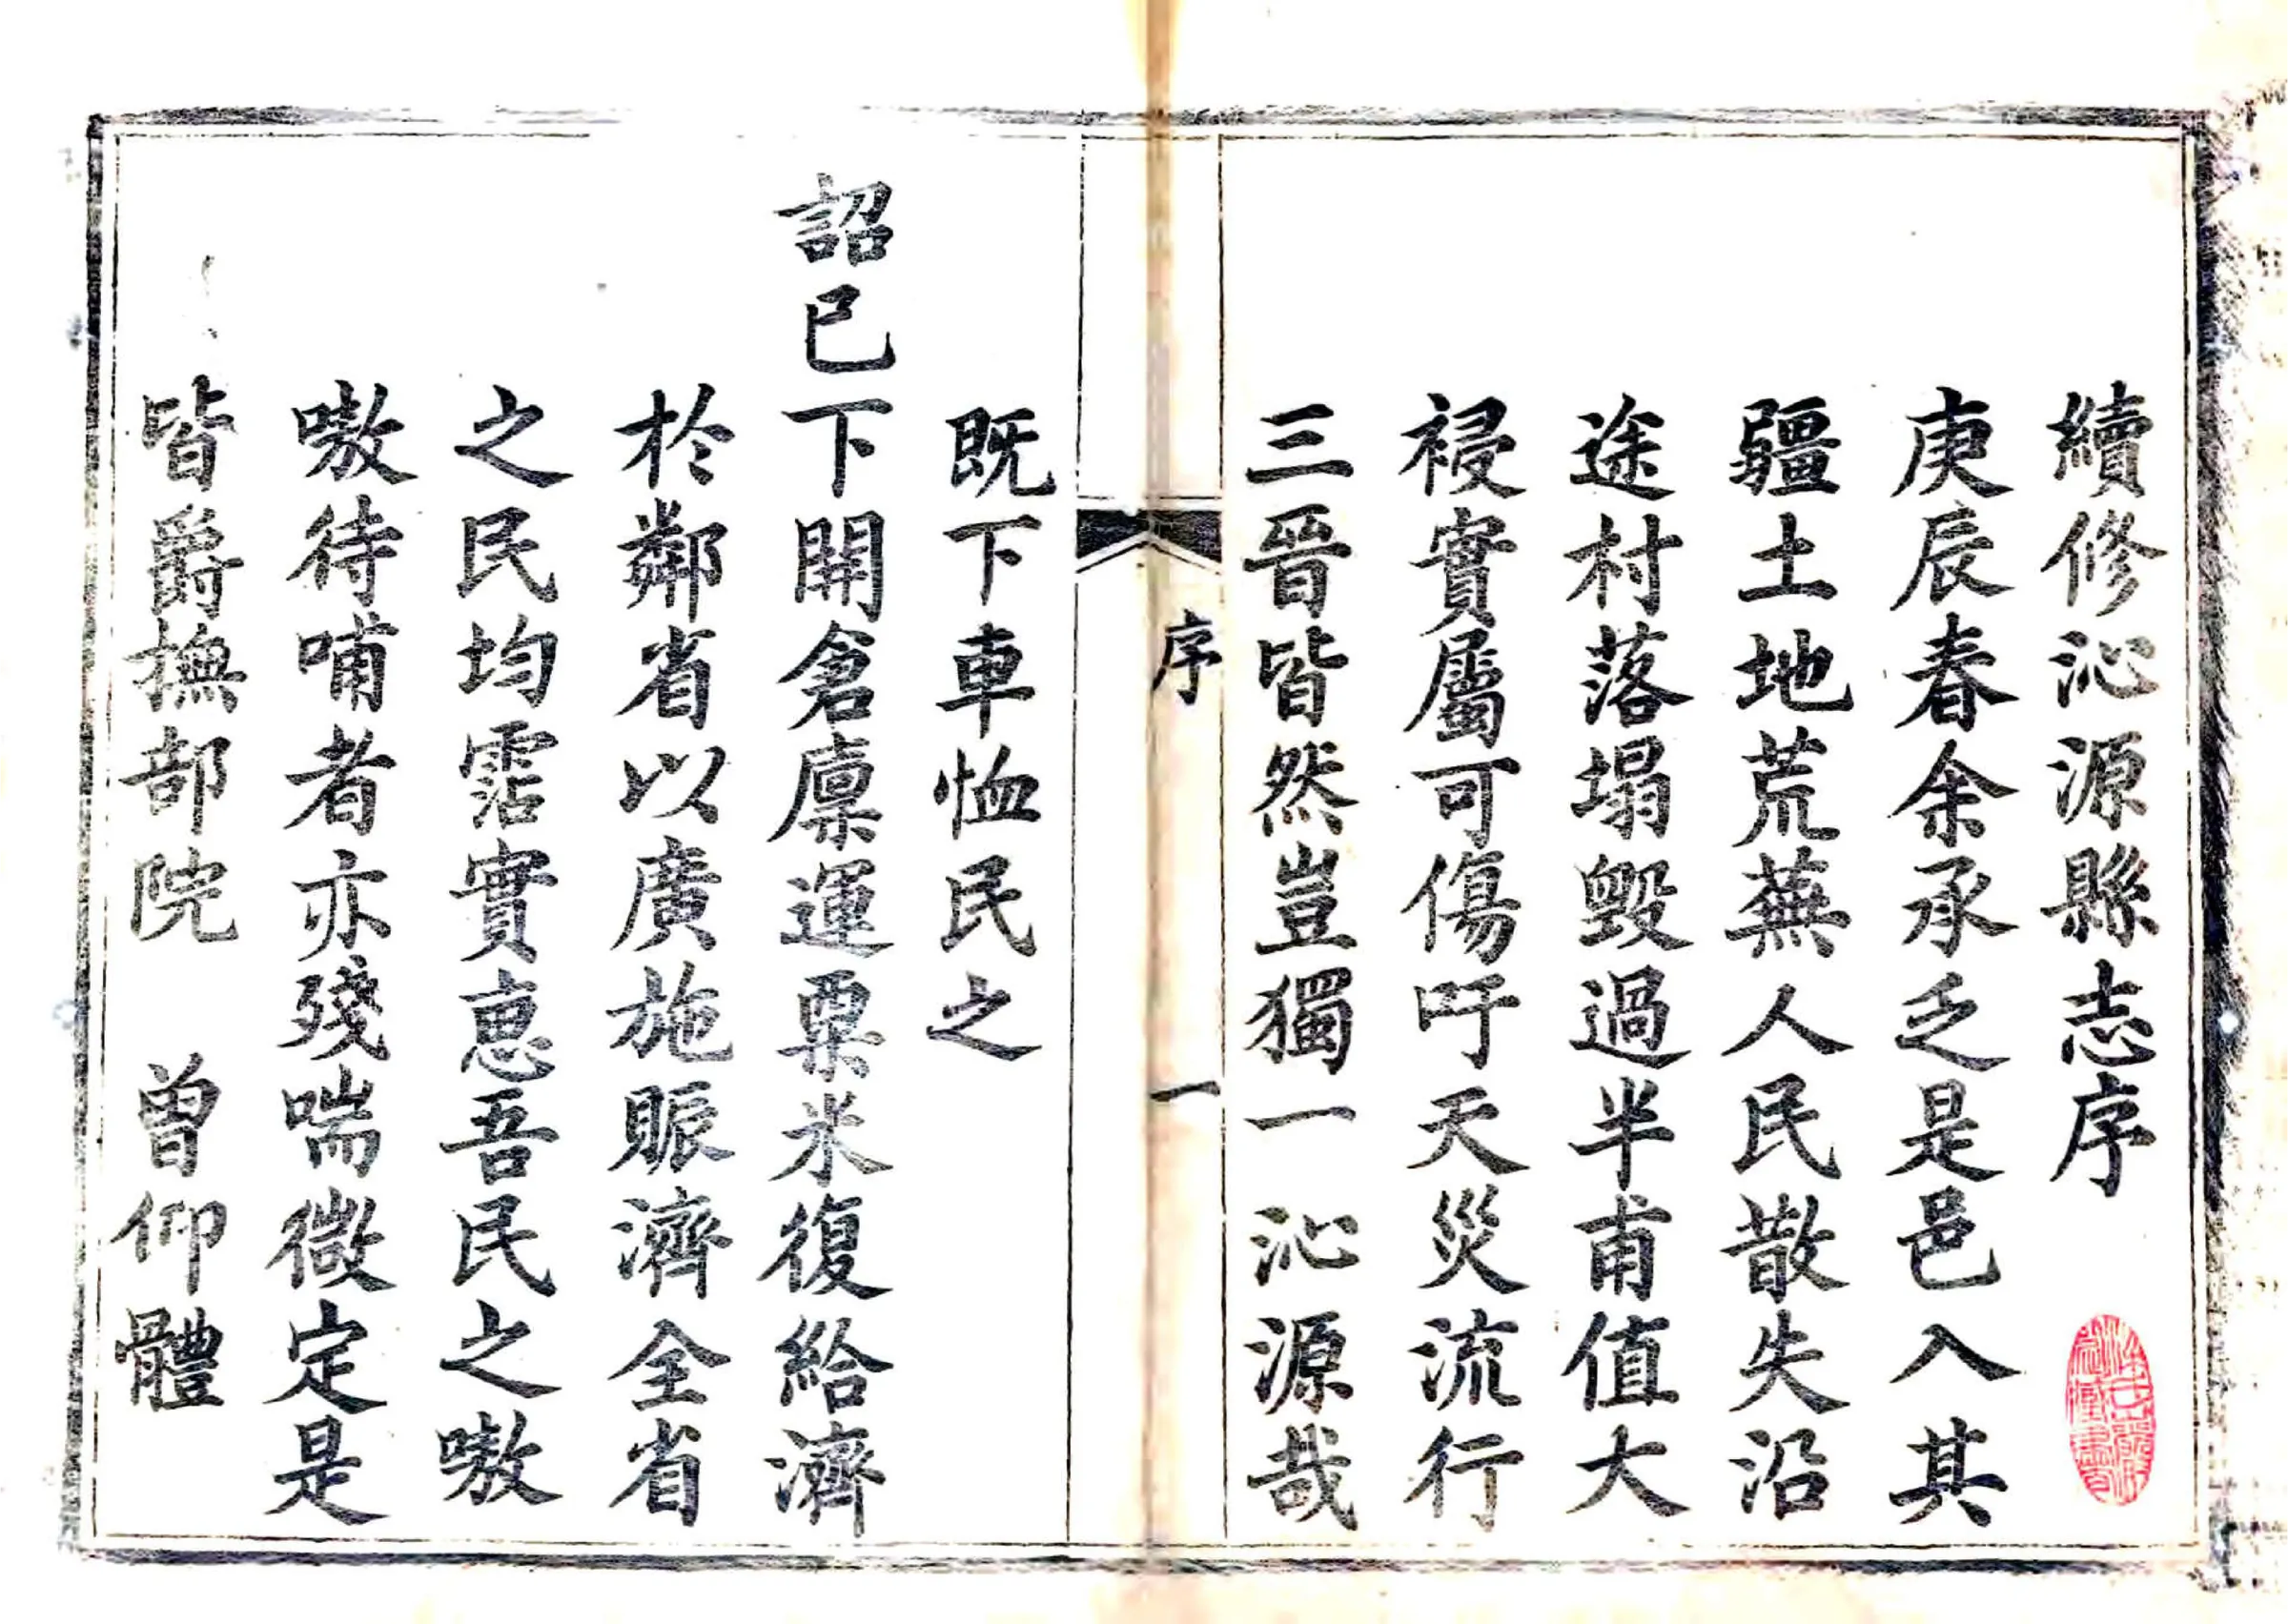 續修沁源縣志序
庚辰春余承乏是邑入其
疆土地荒蕪人民散失沿
途村落塌毀過半甫值大
祲實屬可傷吁天災流行
三晉皆然豈獨一沁源哉
序
一
既下車恤民之
詔已下開倉廪運粟米復給濟
於鄰省以廣施賑濟全省
之民均霑實惠吾民之嗷
嗷待哺者亦殘喘微定是
皆爵撫部院 曾仰體